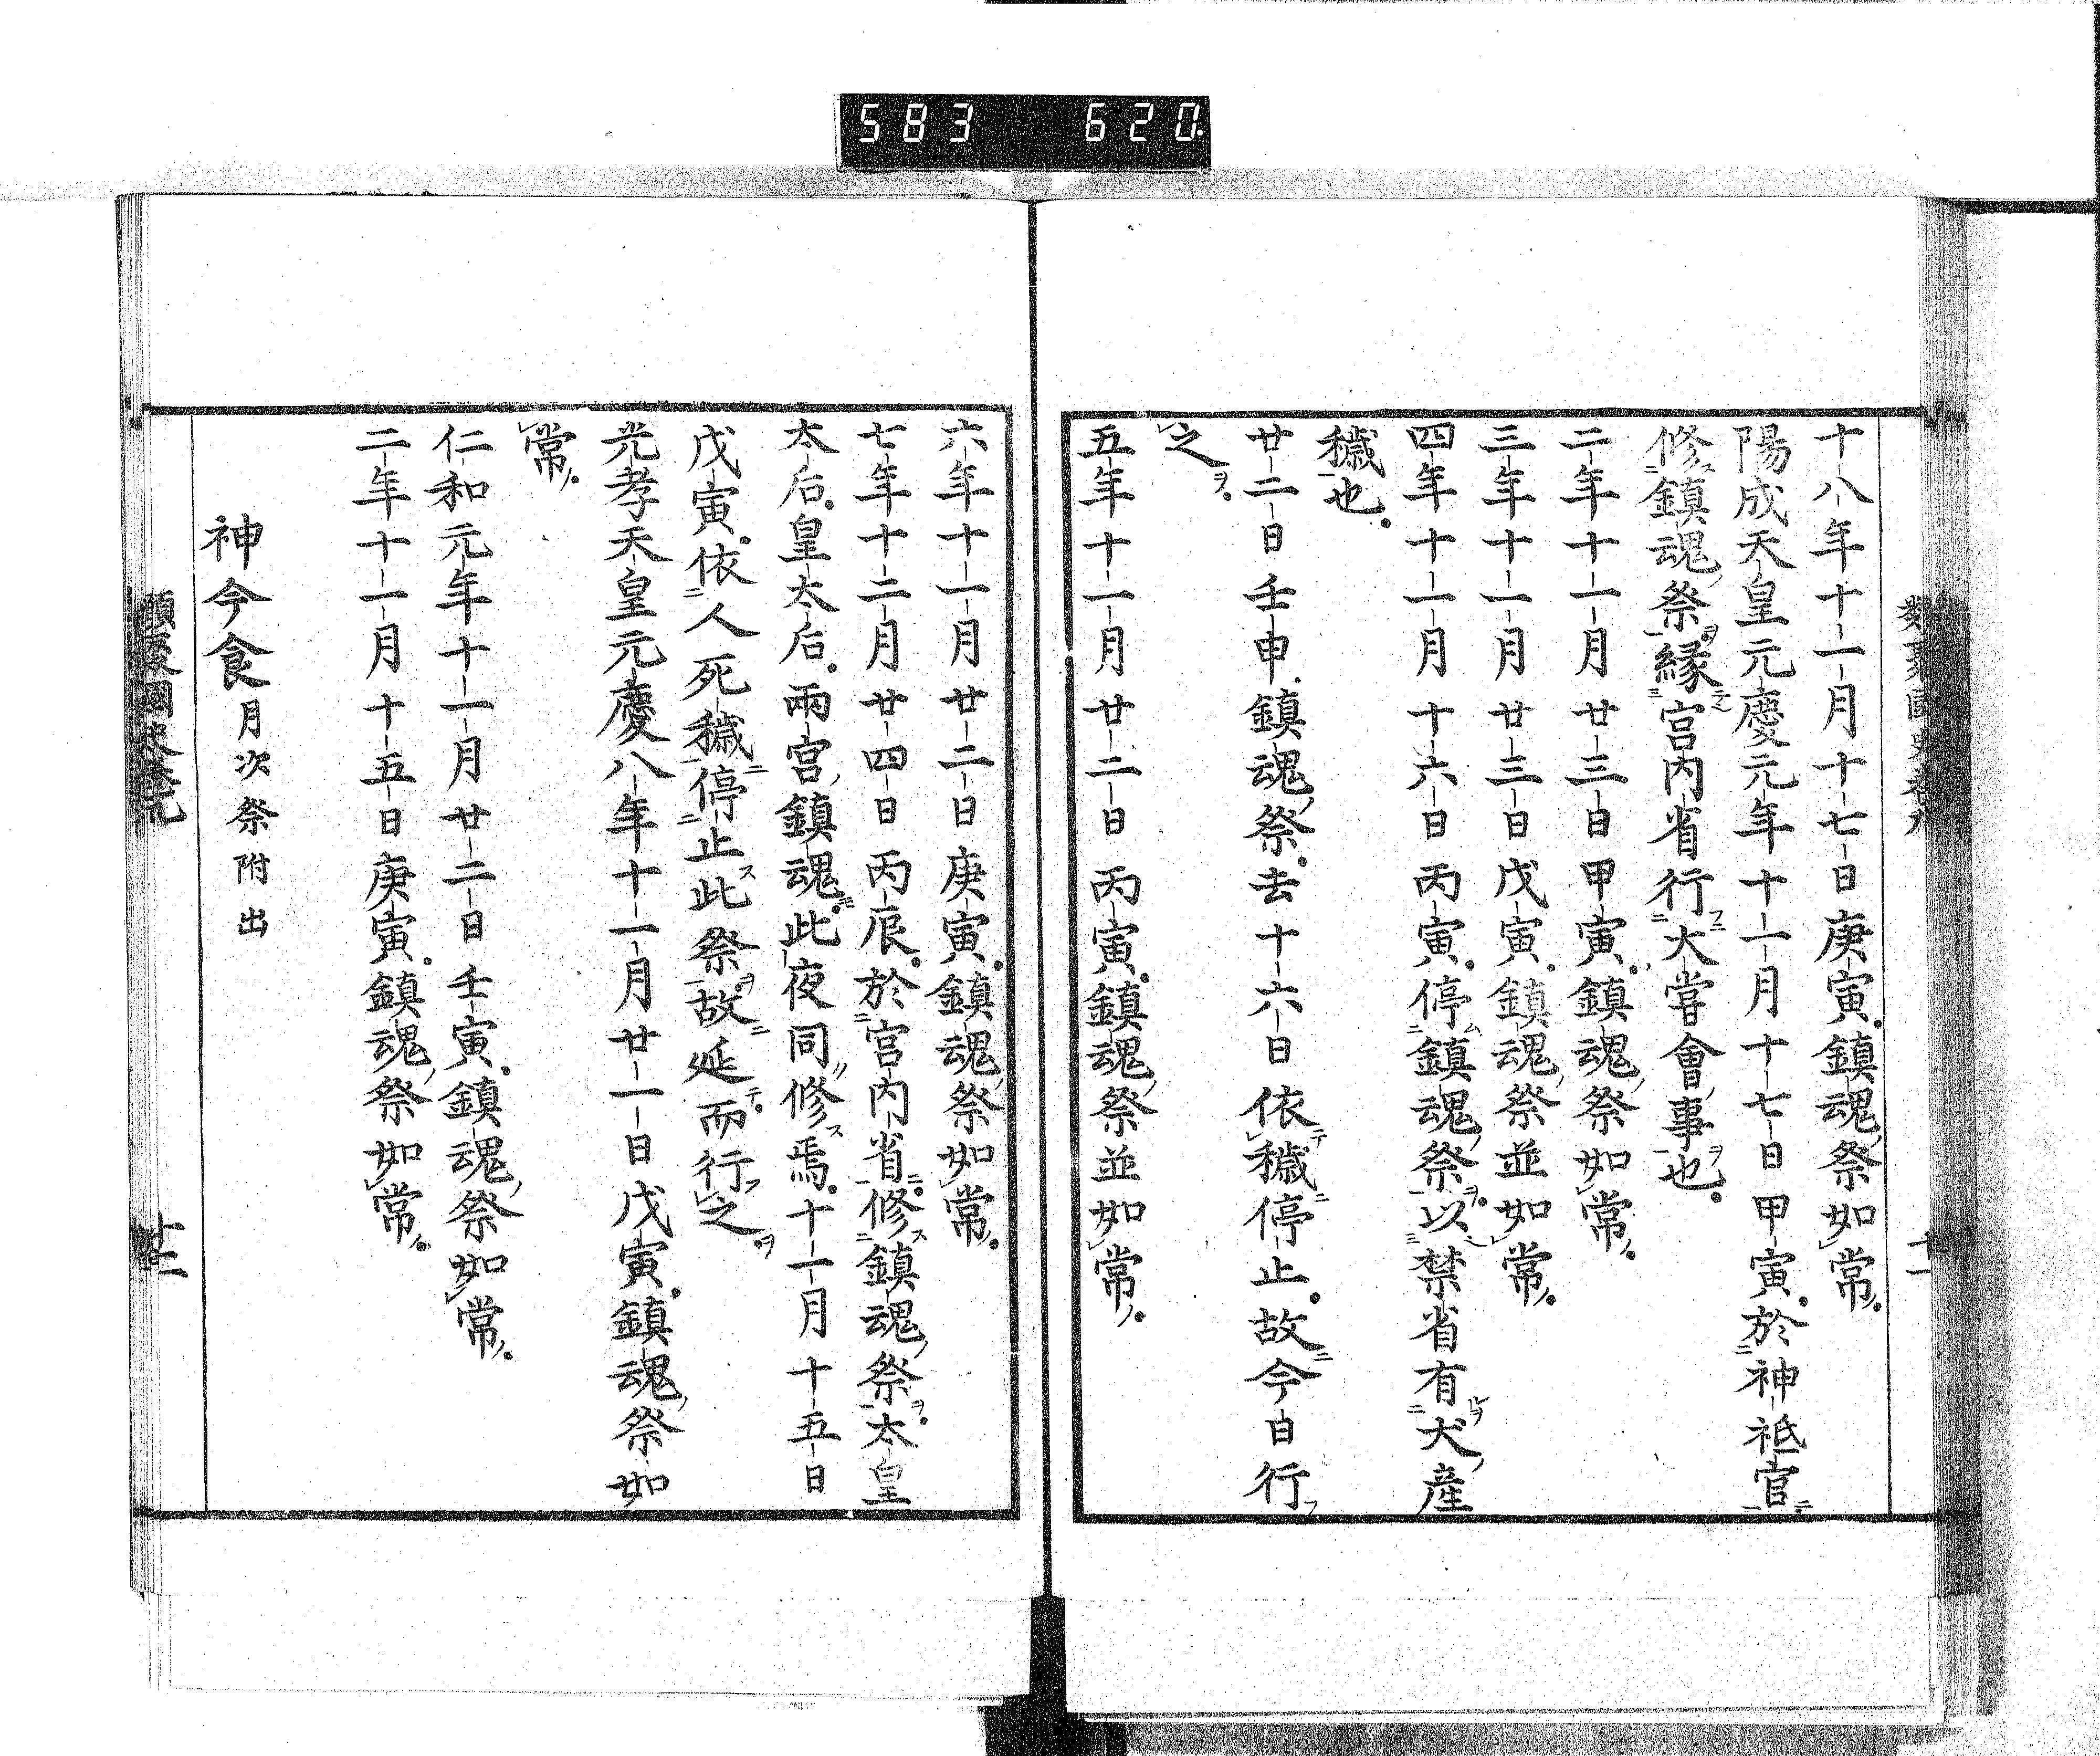 583 620.
十八年十一月十七日庚寅。鎮魂祭如常。
陽成天皇元慶元年十一月十七日甲寅。於神祗官
修鎮魂祭。縁宮内省行大嘗會事也。
二年十一月廿三日甲寅。鎮魂祭如常。
三年十一月廿三日戊寅。鎮魂祭並如常。
四年十一月十六日丙寅。停鎮魂祭。以禁省有犬産
穢也。
廿二日壬申。鎮魂祭。去十六日依穢停止。故今日行
之。
五年十一月廿二日丙寅。鎮魂祭並如常。
六年十一月廿二日庚寅。鎮魂祭如常。
七年十二月廿四日丙辰。於宮内省。修鎮魂祭。太皇
太后。皇太后。兩宮鎮魂。此夜同修焉。十一月十五日
戊寅。依人死穢停止此祭。故延而行之。
光孝天皇元慶八年十一月廿一日戊寅。鎮魂祭如
常。
仁和元年十一月廿二日壬寅。鎮魂祭如常。
二年十一月十五日庚寅。鎮魂祭如常。
神今食月次祭附出